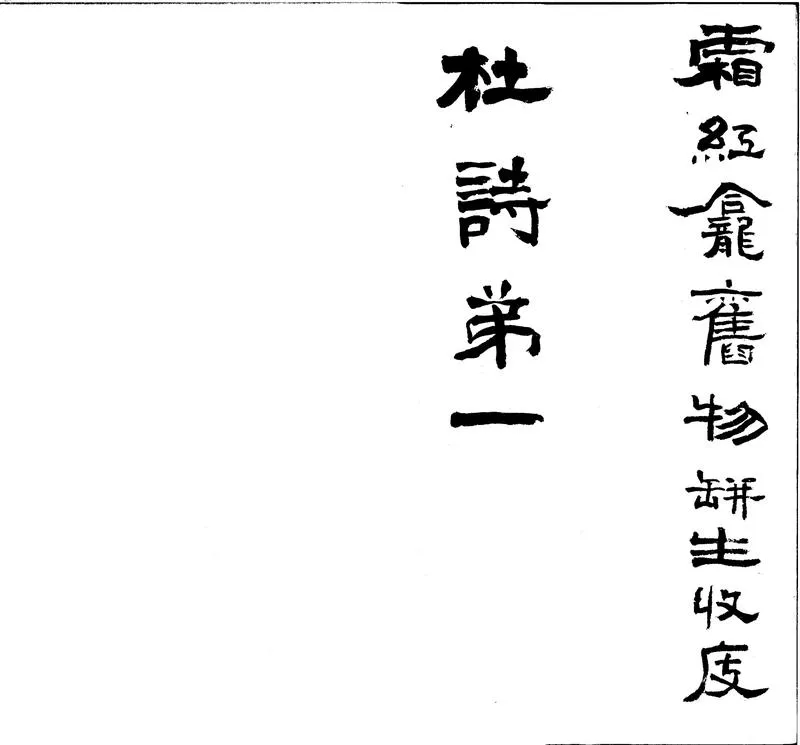 霜紅龕舊物缾生收庋
杜詩弟一